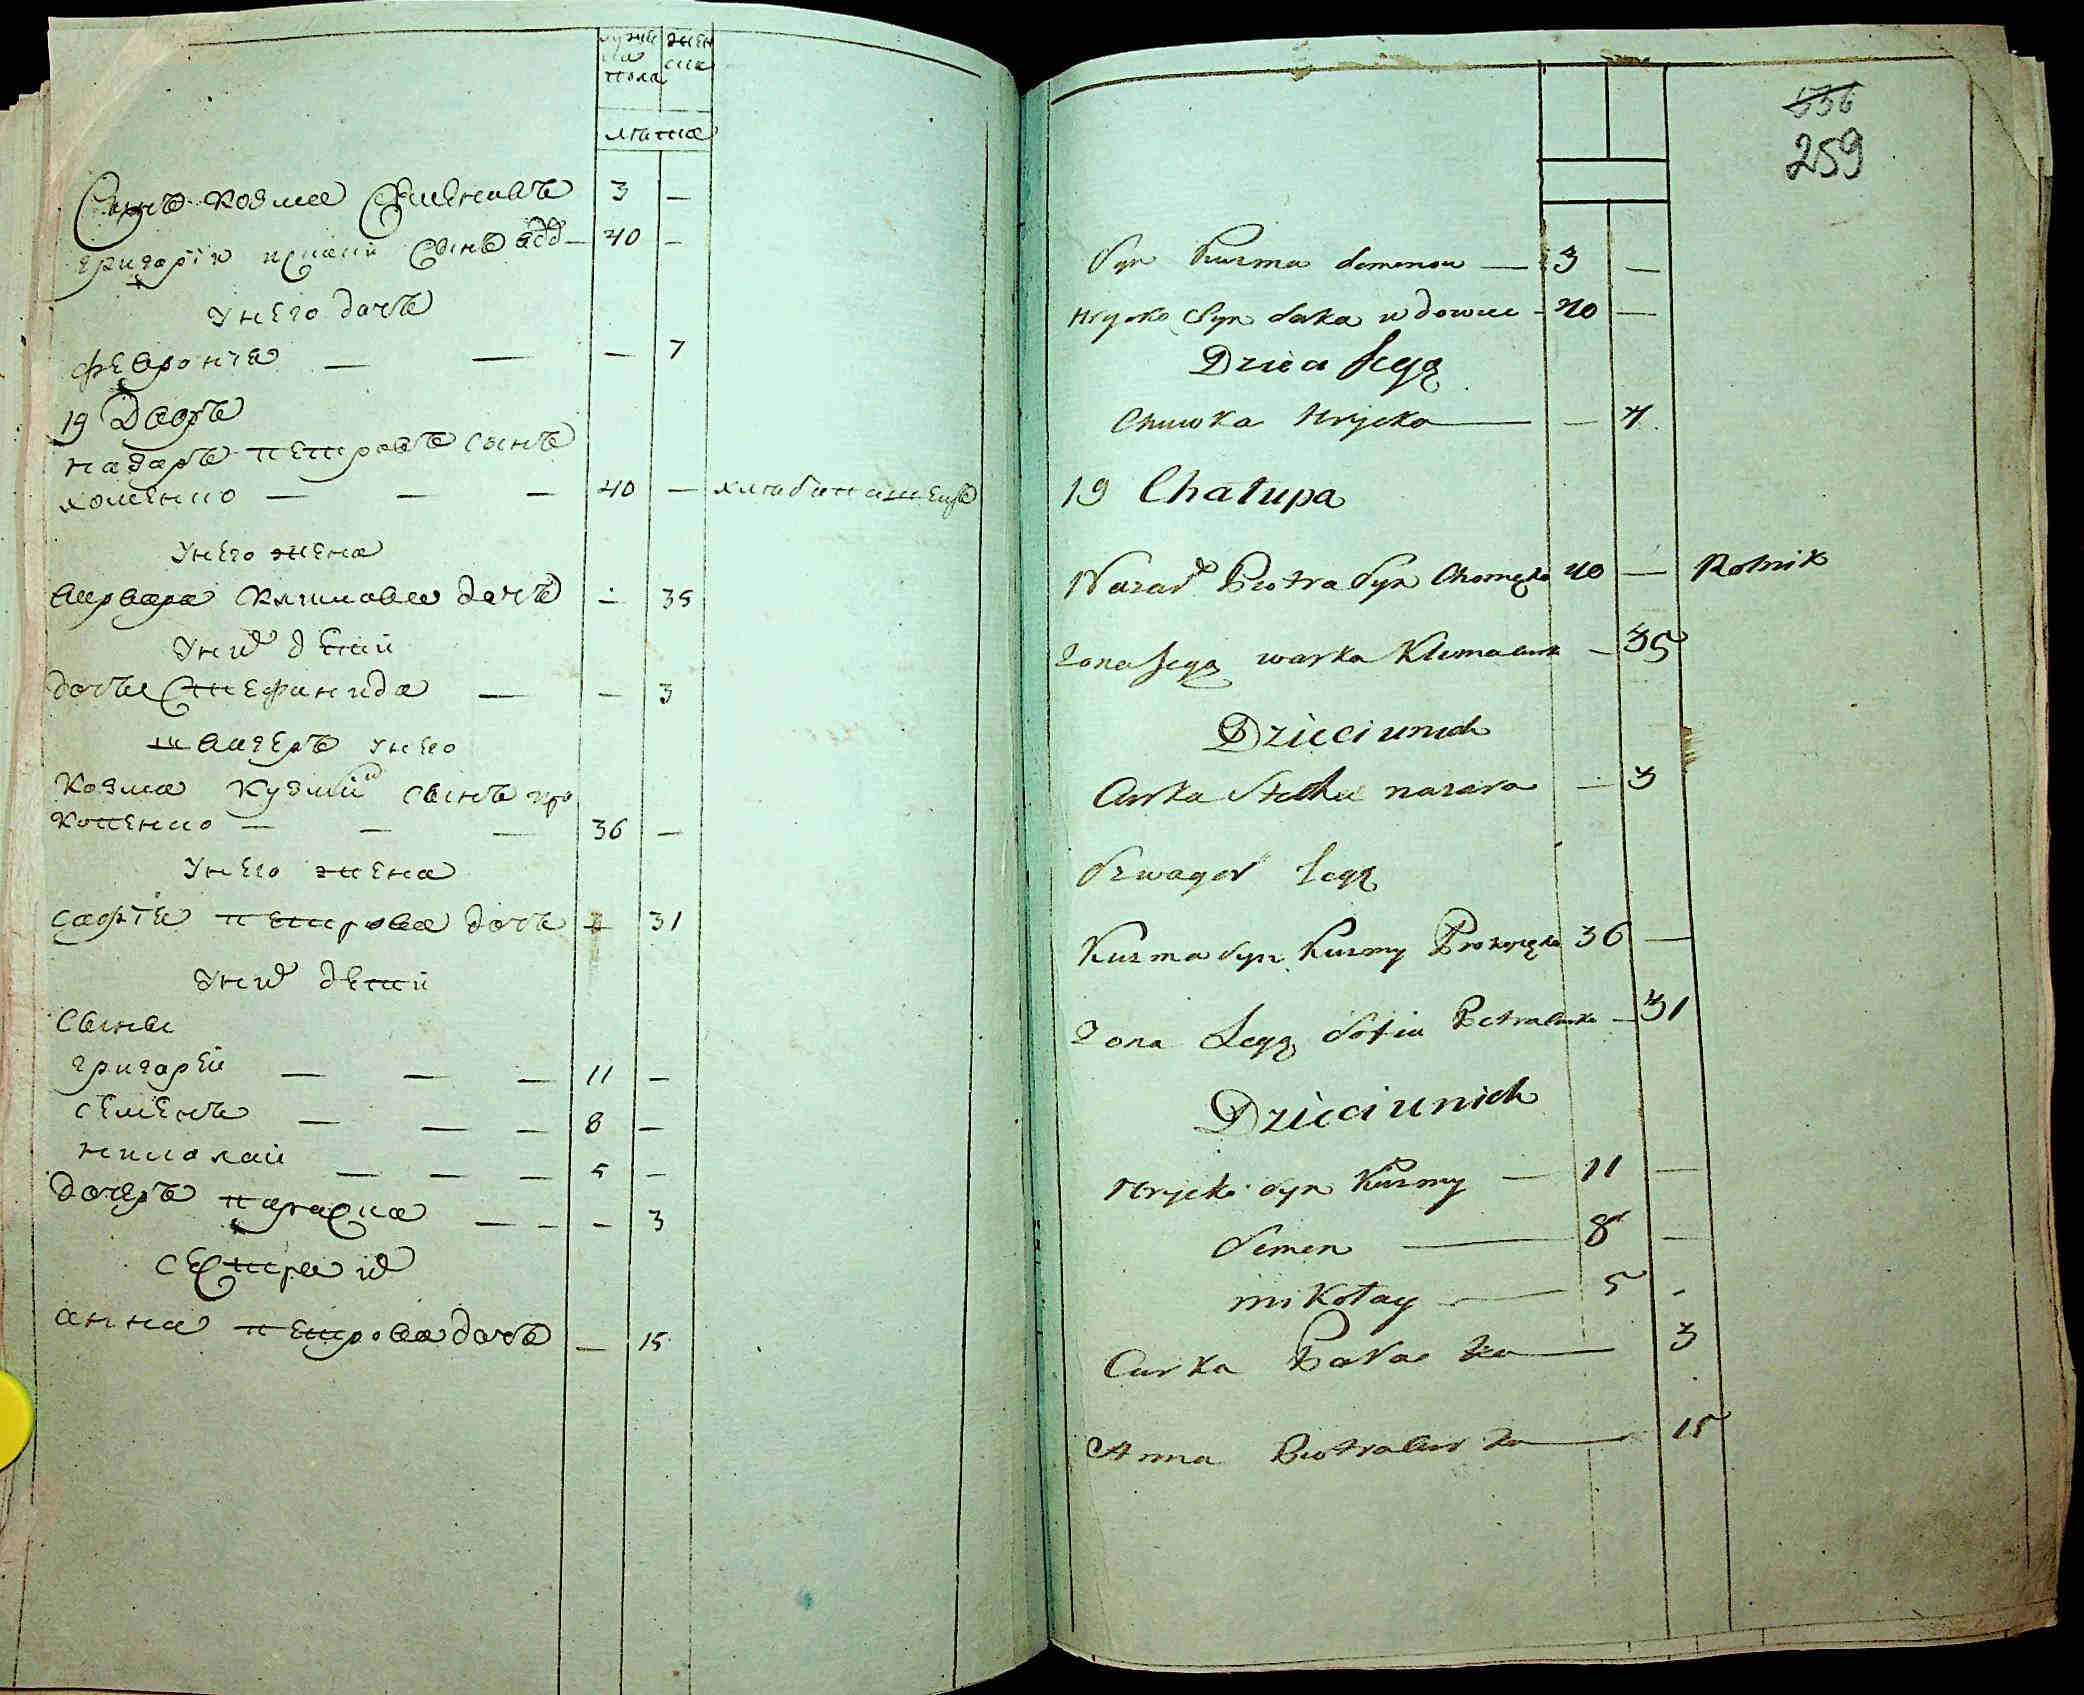 мужеска пола | женск
лѣта
Сынъ козма Семеновъ 3 —
григорій исакій Сынъ вдо — 40 —
Унего дочь
февронiя — — — 7
19 Дворъ
назаръ петровъ сынъ
хоменко — — — 40 — хлебопашецъ
Унего жена
варвара климова дочь — 35
Унихъ детий
дочь Стефанида — — 3
швагеръ унего
Козма Кузмій сынъ про
копенко — — — 36 —
Унего жена
софія петрова дочь — 31
Унихъ детий
Сыны
григорей — — — 11 —
семенъ — — — 8 —
николай — — — 5 —
дочеръ параска — — — 3
сестра ихъ
анна петрова дочь — 15
536
259
Syn Kuzma Semenow — 3 —
Hrycko Syn Saka wdowiec - 40 —
Dzieci Jego
Chuwka Hrycka — — 7
19 Chałupa
Nazar Piotra Syn Chomęko 40 — Rolnik
Zona Jego warka Klima Curka — 35
Dzieci unich
Curka Stecha nazara — 3
Szwagor Jego
Kuzma Syn Kuzmy Prokopęko 36 —
Zona Jego Sofia Petra Curka — 31
Dzieci unich
Hrycko syn Kuzmy — 11 —
Semen — 8 —
mikołay — 5 -
Curka Paraska — 3
Anna Piotra Curka — 15